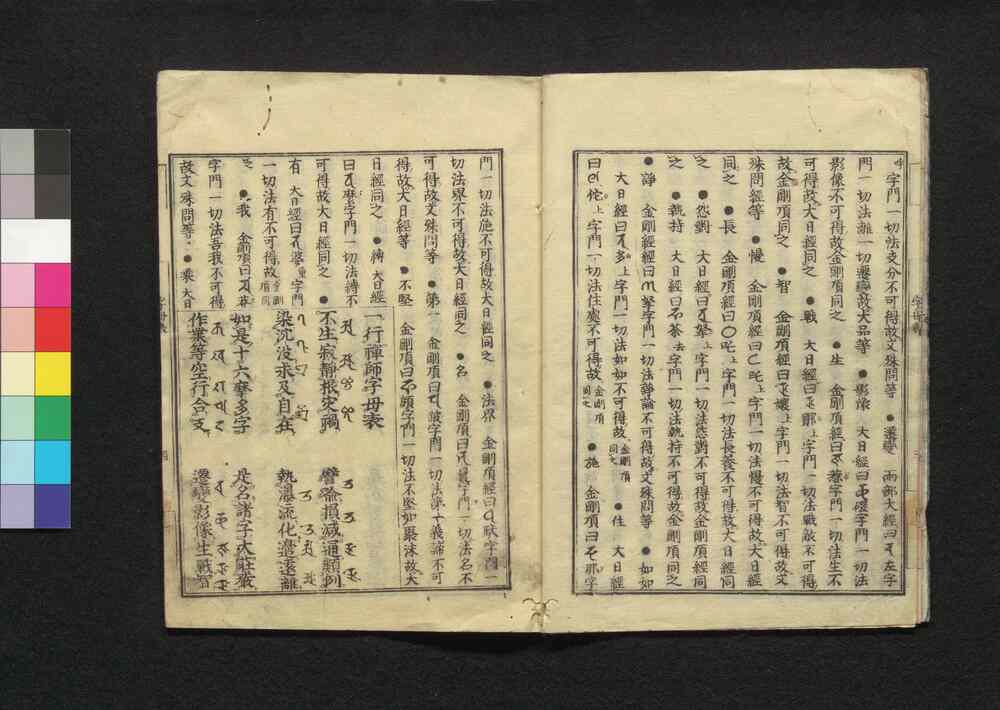 字門一切法支分不可得故文殊問等 ●遷變 兩部大經曰 左字
門一切法離一切遷變故大品等 ●影像 大日經曰 磋字門一切法
影像不可得故金剛項同之 ●生 金剛項經曰 惹字門一切法生不
可得故大日經同之 ●戰 大日經曰 鄼上字門一切法戰敵不可得
故金剛項同之 ●智 金剛項經曰 孃上字門一切法智不可得故文
殊問經等 ●慢 金剛項經曰 吒上字門一切法慢不可得故大日經
同之 ●長 金剛項經曰 吒上字門一切法長養不可得故大日經同
之 ●怨對 大日經曰 拏上字門一切法怨對不可得故金剛項經同
之 ●執持 大日經曰 荼去字門一切法執持不可得故金剛項同之
●諍 金剛經經曰 拏字門一切法諍論不可得故文殊問等 ●如如
大日經曰 多上字門一切法如如不可得故金剛項同之 ●住 大日經
曰 佗上字門一切法住處不可得故金剛項同之 ●施 金剛項曰 那字
門一切法施不可得故大日經同之 ●法界 金剛項經曰 馱字門一
切法界不可得故大日經同之 ●名 金剛項曰 曩字門一切法名不
可得故文殊問等 ●第一 金剛項曰 波字門一切法第一義諦不可
得故大日經等 ●不堅 金剛項曰 頗字門一切法不堅如聚沫故大
日經同之 ●縛 大日經
曰 麼字門一切法縛不
可得故大日經同之 ●
有 大日經曰 婆重字門
一切法有不可得故金剛項同
之 ●我 金剛項曰 莽
字門一切法吾我不可得
故文殊問等 ●乘 大日
一行禪師字母表
不生寂靜根災禍 譬喻損減通類例
染沉没求及自在 執瀑流化邊遠離
如是十六摩多字 是名諸字大莊嚴
作業等空行合支 遷變影像生戰智